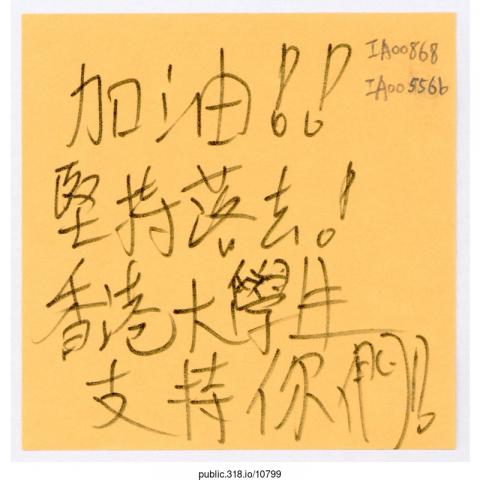 加油!!
IA00868
IA005566
堅持落去!
香港大學生
支持你們!!
public.318.io/10799